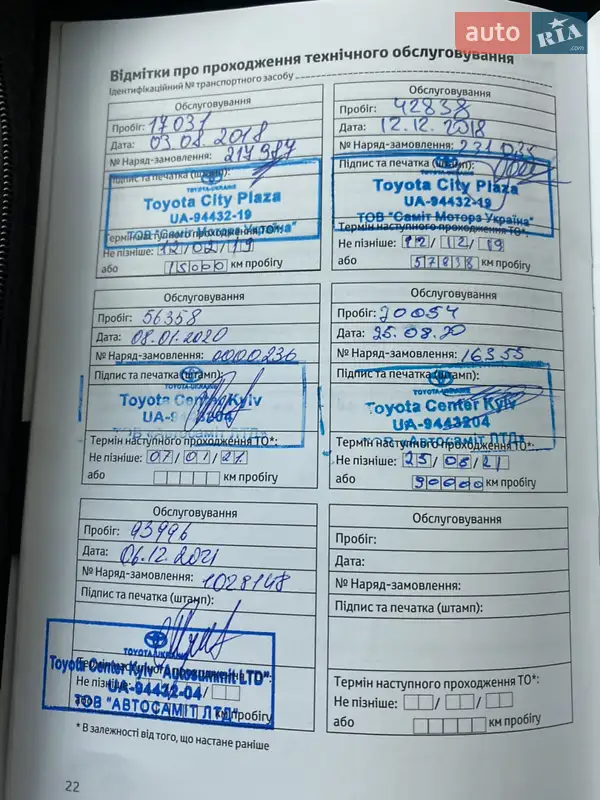 auto RIA .com
Відмітки про проходження технічного обслуговування
Ідентифікаційний № транспортного засобу
Обслуговування
Пробіг: 17031
Дата: 03.08.2018
№ Наряд-замовлення: 217987
Підпис та печатка (штамп):
TOYOTA-UKRAINE
Toyota City Plaza
UA-94432-19
ТОВ "Саміт Моторз Україна"
Термін наступного проходження ТО*:
Не пізніше: 12/02/19
або 15000 км пробігу
Обслуговування
Пробіг: 42838
Дата: 12.12.2018
№ Наряд-замовлення:
Підпис та печатка (штамп):
Toyota City Plaza
UA-94432-19
ТОВ "Саміт Моторз Україна"
Термін наступного проходження ТО*:
Не пізніше: 12/12/19
або 57838 км пробігу
Обслуговування
Пробіг: 56358
Дата: 08.01.2020
№ Наряд-замовлення: 0000236
Підпис та печатка (штамп):
TOYOTA-UKRAINE
Toyota Center Kyiv
UA-9443204
ТОВ «Автосаміт ЛТД»
Термін наступного проходження ТО*:
Не пізніше: 07/01/21
або км пробігу
Обслуговування
Пробіг: 70054
Дата: 25.08.20
№ Наряд-замовлення: 16355
Підпис та печатка (штамп):
TOYOTA-UKRAINE
Toyota Center Kyiv
UA-9443204
ТОВ «Автосаміт ЛТД»
Термін наступного проходження ТО*:
Не пізніше: 25/08/21
або 90000 км пробігу
Обслуговування
Пробіг: 93996
Дата: 06.12.2021
№ Наряд-замовлення: 1028148
Підпис та печатка (штамп):
TOYOTA-UKRAINE
Toyota Center Kyiv "Autosummit LTD"
UA-94432-04
ТОВ "АВТОСАМІТ ЛТД"
Не пізніше:
Обслуговування
Пробіг:
Дата:
№ Наряд-замовлення:
Підпис та печатка (штамп):
Термін наступного проходження ТО*:
Не пізніше:
або км пробігу
* В залежності від того, що настане раніше
22